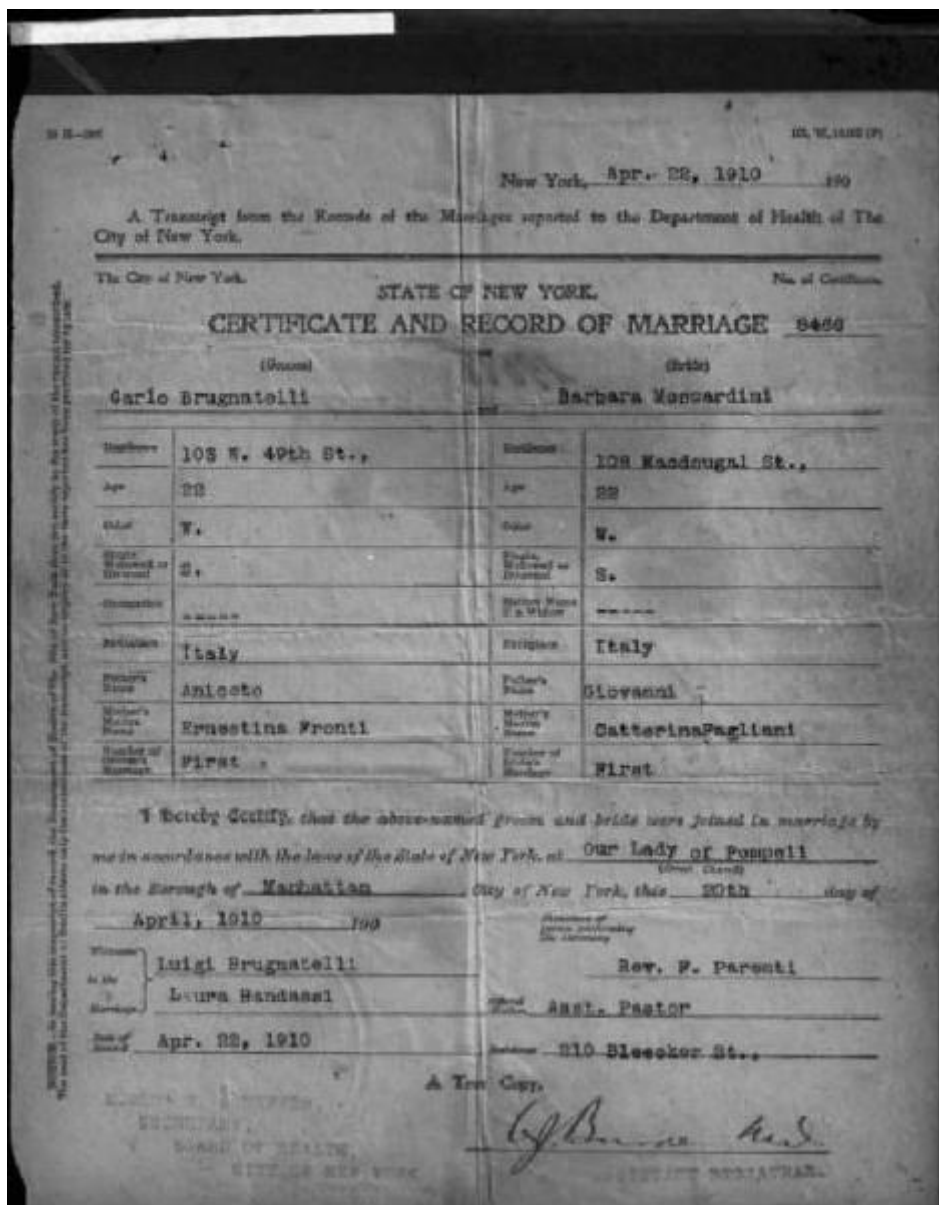 New York, Apr. 22, 1910 190
A Transcript from the Records of the Marriages reported to the Department of Health of The
City of New York.
The City of New York. No. of Certificate.
STATE OF NEW YORK.
CERTIFICATE AND RECORD OF MARRIAGE
(Groom) (Bride)
Carlo Brugnatelli and Barbara Moscardini
Residence 103 W. 49th St., Residence 108 Macdougal St.,
Age 22 Age 22
Color W. Color W.
Single, Widowed or Divorced S. Single, Widowed or Divorced S.
Occupation ----- Maiden Name if a Widow -----
Birthplace Italy Birthplace Italy
Father's Name Aniceto Father's Name Giovanni
Mother's Maiden Name Ernestina Fronti Mother's Maiden Name Catterina Pagliani
Number of Groom's Marriage First Number of Bride's Marriage First
I hereby Certify, that the above-named groom and bride were joined in marriage by
me in accordance with the laws of the State of New York, at Our Lady of Pompeii
in the Borough of Manhattan, City of New York, this 20th day of
April, 1910 190
Signature of person performing the ceremony
Witnesses to the Marriage Luigi Brugnatelli Rev. F. Parenti
Laura Bandassi Official Station Asst. Pastor
Date of Record Apr. 22, 1910 Residence 210 Bleecker St.,
A True Copy.
SECRETARY,
BOARD OF HEALTH,
CITY OF NEW YORK
ASSISTANT REGISTRAR.